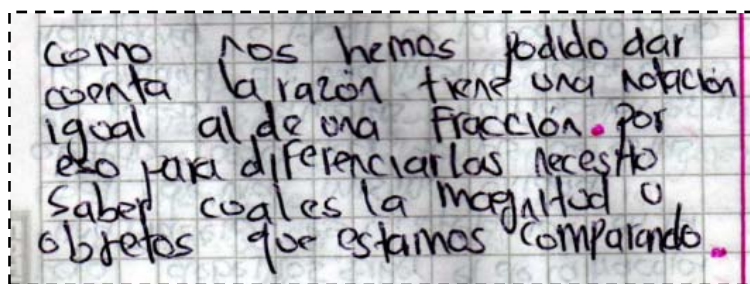 como nos hemos podido dar
cuenta la razón tiene una notación
igual al de una fracción. Por
eso para diferenciarlas necesito
saber cual es la magnitud u
objetos que estamos comparando.